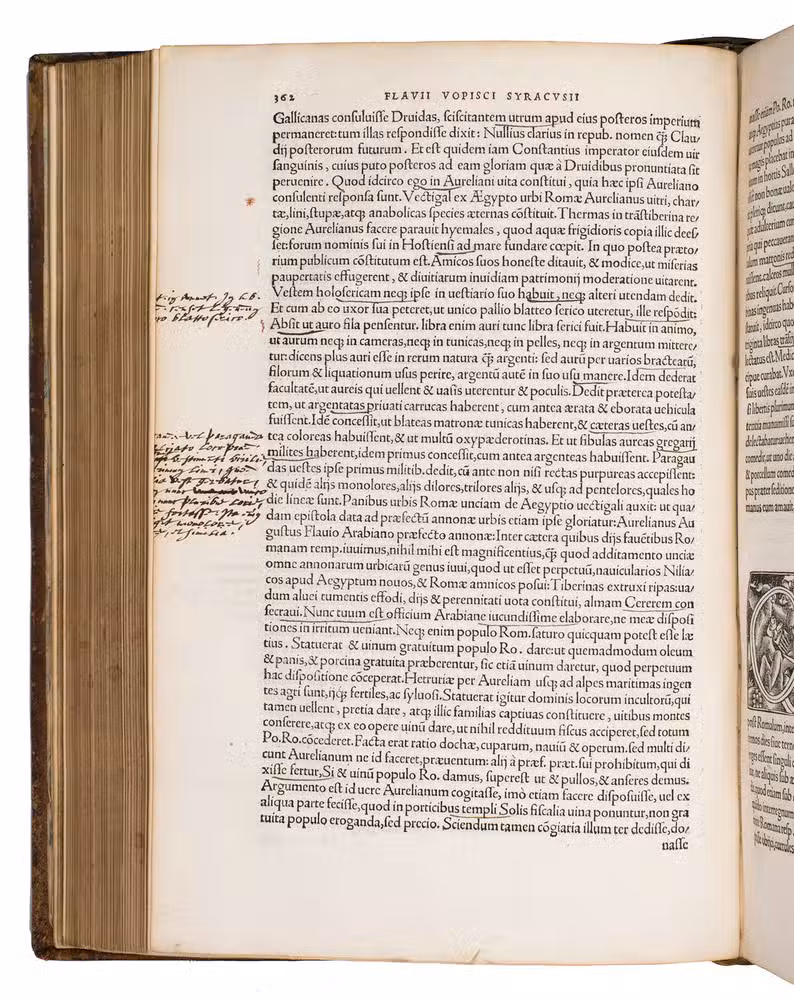 362 FLAVII VOPISCI SYRACVSII
Gallicanas consuluisse Druidas, sciscitantem utrum apud eius posteros imperium
permaneret: tum illas respondisse dixit: Nullius clarius in repub. nomen q̃ȝ Clau/
dij posterorum futurum. Et est quidem iam Constantius imperator eiusdem uir
sanguinis, cuius puto posteros ad eam gloriam quæ à Druidibus pronuntiata sit
peruenire. Quod idcirco ego in Aureliani uita constitui, quia hæc ipsi Aureliano
consulenti responsa sunt. Vectigal ex Ægypto urbi Romæ Aurelianus uitri, char/
tæ, lini, stupæ, atqȝ anabolicas species æternas cōstituit. Thermas in trāstiberina re/
gione Aurelianus facere parauit hyemales, quod aquæ frigidioris copia illic dees/
set: forum nominis sui in Hostiensi ad mare fundare cœpit. In quo postea præto/
rium publicum cōstitutum est. Amicos suos honeste ditauit, & modice, ut miserias
paupertatis effugerent, & diuitiarum inuidiam patrimonij moderatione uitarent.
Vestem holosericam neqȝ ipse in uestiario suo habuit, neqȝ alteri utendam dedit.
Et cum ab eo uxor sua peteret, ut unico pallio blatteo serico uteretur, ille respōdit:
Absit ut auro fila pensentur. libra enim auri tunc libra serici fuit. Habuit in animo,
ut aurum neqȝ in cameras, neqȝ in tunicas, neqȝ in pelles, neqȝ in argentum mittere/
tur: dicens plus auri esse in rerum natura q̃ȝ argenti: sed aurū per uarios bractearū,
filorum & liquationum usus perire, argentū autē in suo usu manere. Idem dederat
facultatē, ut aureis qui uellent & uasis uterentur & poculis. Dedit præterea potesta/
tem, ut argentatas priuati carrucas haberent, cum antea ærata & eborata uehicula
fuissent. Idē concessit, ut blateas matronæ tunicas haberent, & cæteras uestes, cū an/
tea coloreas habuissent, & ut multū oxypæderotinas. Et ut fibulas aureas gregarij
milites haberent, idem primus concessit, cum antea argenteas habuissent. Paragau
das uestes ipse primus militib. dedit, cū ante non nisi rectas purpureas accepissent:
& quidē alijs monolores, alijs dilores, trilores alijs, & usqȝ ad pentelores, quales ho
die lineæ sunt. Panibus urbis Romæ unciam de Aegyptio uectigali auxit: ut qua/
dam epistola data ad præfectū annonæ urbis etiam ipse gloriatur: Aurelianus Au
gustus Flauio Arabiano præfecto annonæ: Inter cætera quibus dijs fauētibus Ro/
manam remp. iuuimus, nihil mihi est magnificentius, q̃ȝ quod additamento unciæ
omne annonarum urbicarū genus iuui, quod ut esset perpetuū, nauicularios Nilia/
cos apud Aegyptum nouos, & Romæ amnicos posui: Tiberinas extruxi ripas: ua/
dum aluei tumentis effodi, dijs & perennitati uota constitui, almam Cererem con
secraui. Nunc tuum est officium Arabiane iucundissime elaborare, ne meæ disposi
tiones in irritum ueniant. Neqȝ enim populo Rom. saturo quicquam potest esse læ
tius. Statuerat & uinum gratuitum populo Ro. dare: ut quemadmodum oleum
& panis, & porcina gratuita præberentur, sic etiā uinum daretur, quod perpetuum
hac dispositione cōceperat. Hetruriæ per Aureliam usqȝ ad alpes maritimas ingen
tes agri sunt, ijqȝ fertiles, ac syluosi. Statuerat igitur dominis locorum incultorū, qui
tamen uellent, pretia dare, atqȝ illic familias captiuas constituere, uitibus montes
conserere, atqȝ ex eo opere uinū dare, ut nihil reddituum fiscus acciperet, sed totum
Po. Ro. cōcederet. Facta erat ratio dochæ, cuparum, nauiū & operum. sed multi di/
cunt Aurelianum ne id faceret, præuentum: alij à præf. præt. sui prohibitum, qui di
xisse fertur, Si & uinū populo Ro. damus, superest ut & pullos, & anseres demus.
Argumento est id uere Aurelianum cogitasse, imò etiam facere disposuisse, uel ex
aliqua parte fecisse, quod in porticibus templi Solis fiscalia uina ponuntur, non gra
tuita populo eroganda, sed precio. Sciendum tamen cōgiaria illum ter dedisse, do/
nasse